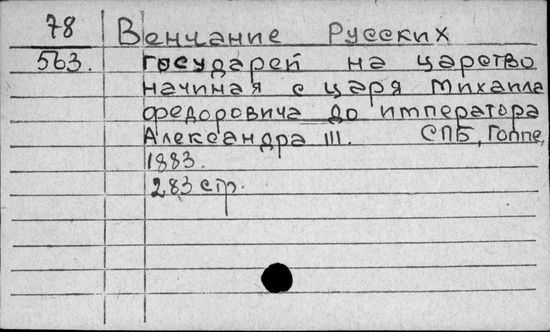 78 Венчание Русских
563. государей на царство
начиная с царя Михаила
Федоровича до императора
Александра III. СПБ, Гоппе,
1883.
283 стр.